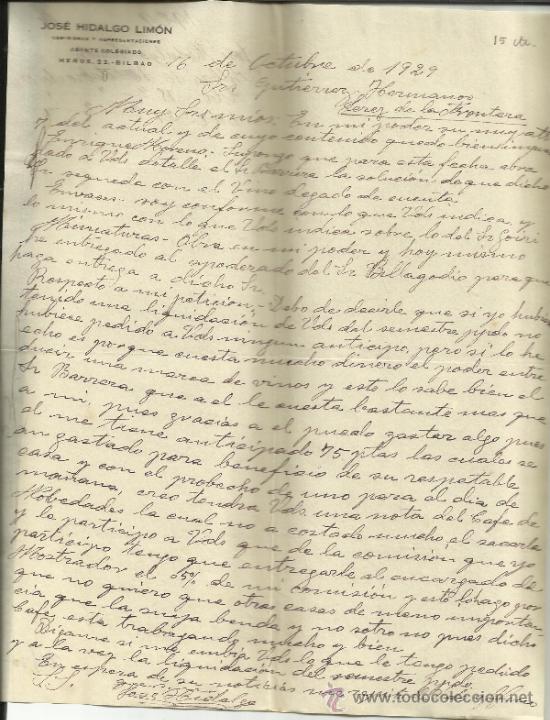 JOSÉ HIDALGO LIMÓN
COMISIONES Y REPRESENTACIONES
AGENTE COLEGIADO
HEROS, 22.-BILBAO
15 cta.
16 de Octubre de 1929
Srs Gutierrez Hermanos
Jerez de la Frontera
Muy Srs mios: En mi poder su muy atta
7 del actual y de cuyo contenido quedo bien impuesto
Enrique Moreno.- Supongo que para esta fecha abra
dado a Vds detalle el Sr Barrera la solucion de que dicho
Sr se queda con el Vino degado de cuenta.
Envases.- soy conforme con lo que Vds indica, y
lo mismo con lo que Vds indica sobre lo del Sr
Miniaturas.- Obra en mi poder y hoy mismo
he entregado al apoderado del Sr Villagodio para que
haga entrega a dicho Sr.
Respecto a mi peticion.- Debo de decirle que si yo hubiera
tenido una liquidacion de Vds del semestre ppdo no
hubiese pedido a Vds ningun anticipo, pero si lo he
echo es porque cuesta mucho dinero el poder entro
ducir una marca de vinos y esto lo sabe bien el
Sr Barrera que a el le cuesta bastante mas que
a mi, pues gracias a el puedo gastar algo pues
el me tiene anticipado 75 ptas las cuales se
an gastado para beneficio de su respetable
casa y con el probecho de uno para al dia de
mañana creo tendra Vds una nota del Cafe de
Nobedades la cual no a costado mucho el sacarla
y le participo a Vds que de la comision que yo
participo tengo que entregarle al encargado de
Mostrador el 5% de mi comision y esto lo hago por
que no quiero que otras casas de meno importan
cia que la suya benda y no sotro no pues dicho
Cafe esta trabajando mucho y bien.
Diganme si me embia Vds lo que le tengo pedido
y a la vez la liquidacion del semestre ppdo.
En espera de su noticias
José Hidalgo